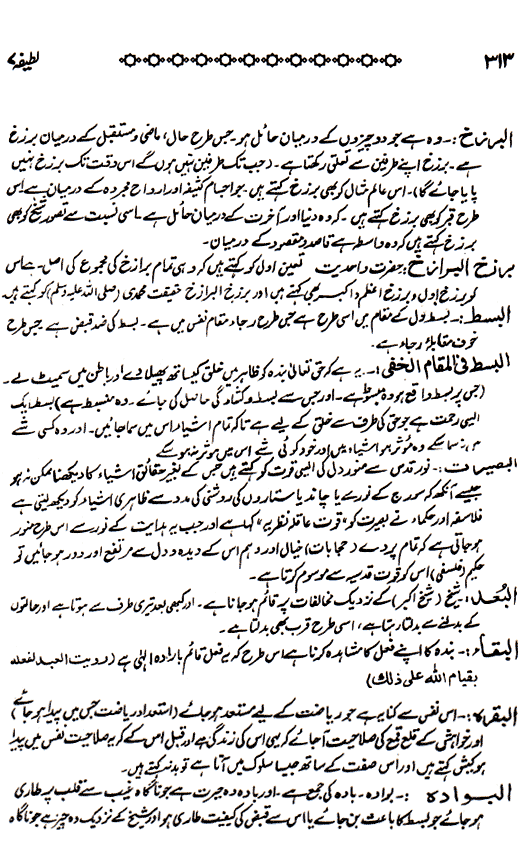 ۳۱۳ لطیفہ ۷
البرزخ :- وہ ہے جو دو چیزوں کے درمیان حائل ہو۔ جس طرح حال، ماضی و مستقبل کے درمیان برزخ
ہے۔ برزخ اپنے طرفین سے تعلق رکھتا ہے۔ (جب تک طرفین نہیں ہوں گے اس وقت تک برزخ نہیں
پایا جائے گا)۔ اس عالم مثال کو بھی برزخ کہتے ہیں۔ جو اجسام کثیفہ اور ارواح مجردہ کے درمیان ہے اس
طرح قبر کو بھی برزخ کہتے ہیں۔ کہ وہ دنیا اور آخرت کے درمیان حائل ہے ماسی نسبت سے تصور شیخ کو بھی
برزخ کہتے ہیں کہ وہ واسطہ ہے قاصد و مقصود کے درمیان۔
برزخ البرازخ :- حضرت واحدیت تعین اول کو کہتے ہیں کہ وہی تمام برازخ کی مجموع کی اصل ہے اس
کو برزخ اول و برزخ اعظم و اکبر بھی کہتے ہیں اور برزخ البرازخ حقیقت محمدی (صلی اللہ علیہ وسلم) کو کہتے ہیں
البسط :- بسط دل کے مقام میں اسی طرح ہے جس طرح رجاء مقام نفس میں ہے۔ بسط کی ضد قبض ہے جس طرح
خوف مقابلۂ رجاء ہے۔
البسط فی المقام الخفی :- یہ ہے کہ حق تعالیٰ بندہ کو ظاہر میں خلق کیساتھ پھیلا دے اور باطن میں سمیٹ لے۔
(جس پر بسط واقع ہو وہ مبسوط ہے۔ اور جس سے بسط و کشادگی حاصل کی جائے۔ وہ منبسط ہے) بسط ایک
ایسی رحمت ہے جو حق کی طرف سے خلق کے لیے ہے تاکہ تمام اشیاء اس میں سما جائیں۔ اور وہ کسی شے
میں نہ سما سکے وہ مؤثر ہو اشیاء میں اور خود کوئی شے اس میں مؤثر نہ ہوسکے
البصیرت :- نور قدس سے منور دل کی ایسی قوت کو کہتے ہیں جس کے بغیر حقائق اشیاء کا دیکھنا ممکن نہ ہو
جیسے آنکھ کہ سورج کے نور سے یا چاند یا ستاروں کی روشنی کی مدد سے ظاہری اشیاء کو دیکھ لیتی ہے
فلاسفہ اور حکماء نے بصیرت کو "قوت عاقلہ نظریہ" کہا ہے اور جب یہ ہدایت کے نور سے اس طرح منور
ہو جاتی ہے کہ تمام پردے (حجابات) خیال اور وہم اس کے دیدہ و دل سے مرتفع اور دور ہو جائیں تو
حکیم (فلسفی) اس کو قوت قدسیہ سے موسوم کرتا ہے۔
البُعد :- شیخ (شیخ اکبر) کے نزدیک مخالفات پر قائم ہو جانا ہے۔ اور کبھی بعد تیری طرف سے ہوتا ہے اور حالتوں
کے بدلنے سے بدلتا رہتا ہے، اسی طرح قرب بھی بدلتا ہے۔
البقاء :- بندہ کا اپنے فعل کا مشاہدہ کرنا ہے اس طرح کہ یہ فعل قائم بارادہ الٰہی ہے (رویت العبد لفعلہ
بقیام اللہ علی ذلک)
البقرہ :- اس نفس سے کنایہ ہے جو ریاضت کے لیے مستعد ہو جائے (استعداد ریاضت جس میں پیدا ہو جائے)
اور خواہش کے قلع قمع کی صلاحیت آ جائے کہ یہی اس کی زندگی ہے اور قبل اس کے کہ یہ صلاحیت نفس میں پیدا
ہو کبش کہتے ہیں اور اس صفت کے ساتھ جب سلوک میں آتا ہے تو بدنہ کہتے ہیں۔
البوادہ :- بوادہ۔ بادہ کی جمع ہے۔ اور بادہ وہ حیرت ہے جو ناگاہ غیب سے قلب پر طاری
ہو جائے جو بسط کا باعث بن جائے یا اس سے قبض کی کیفیت طاری ہو اور شیخ کے نزدیک وہ چیز ہے جو ناگاہ